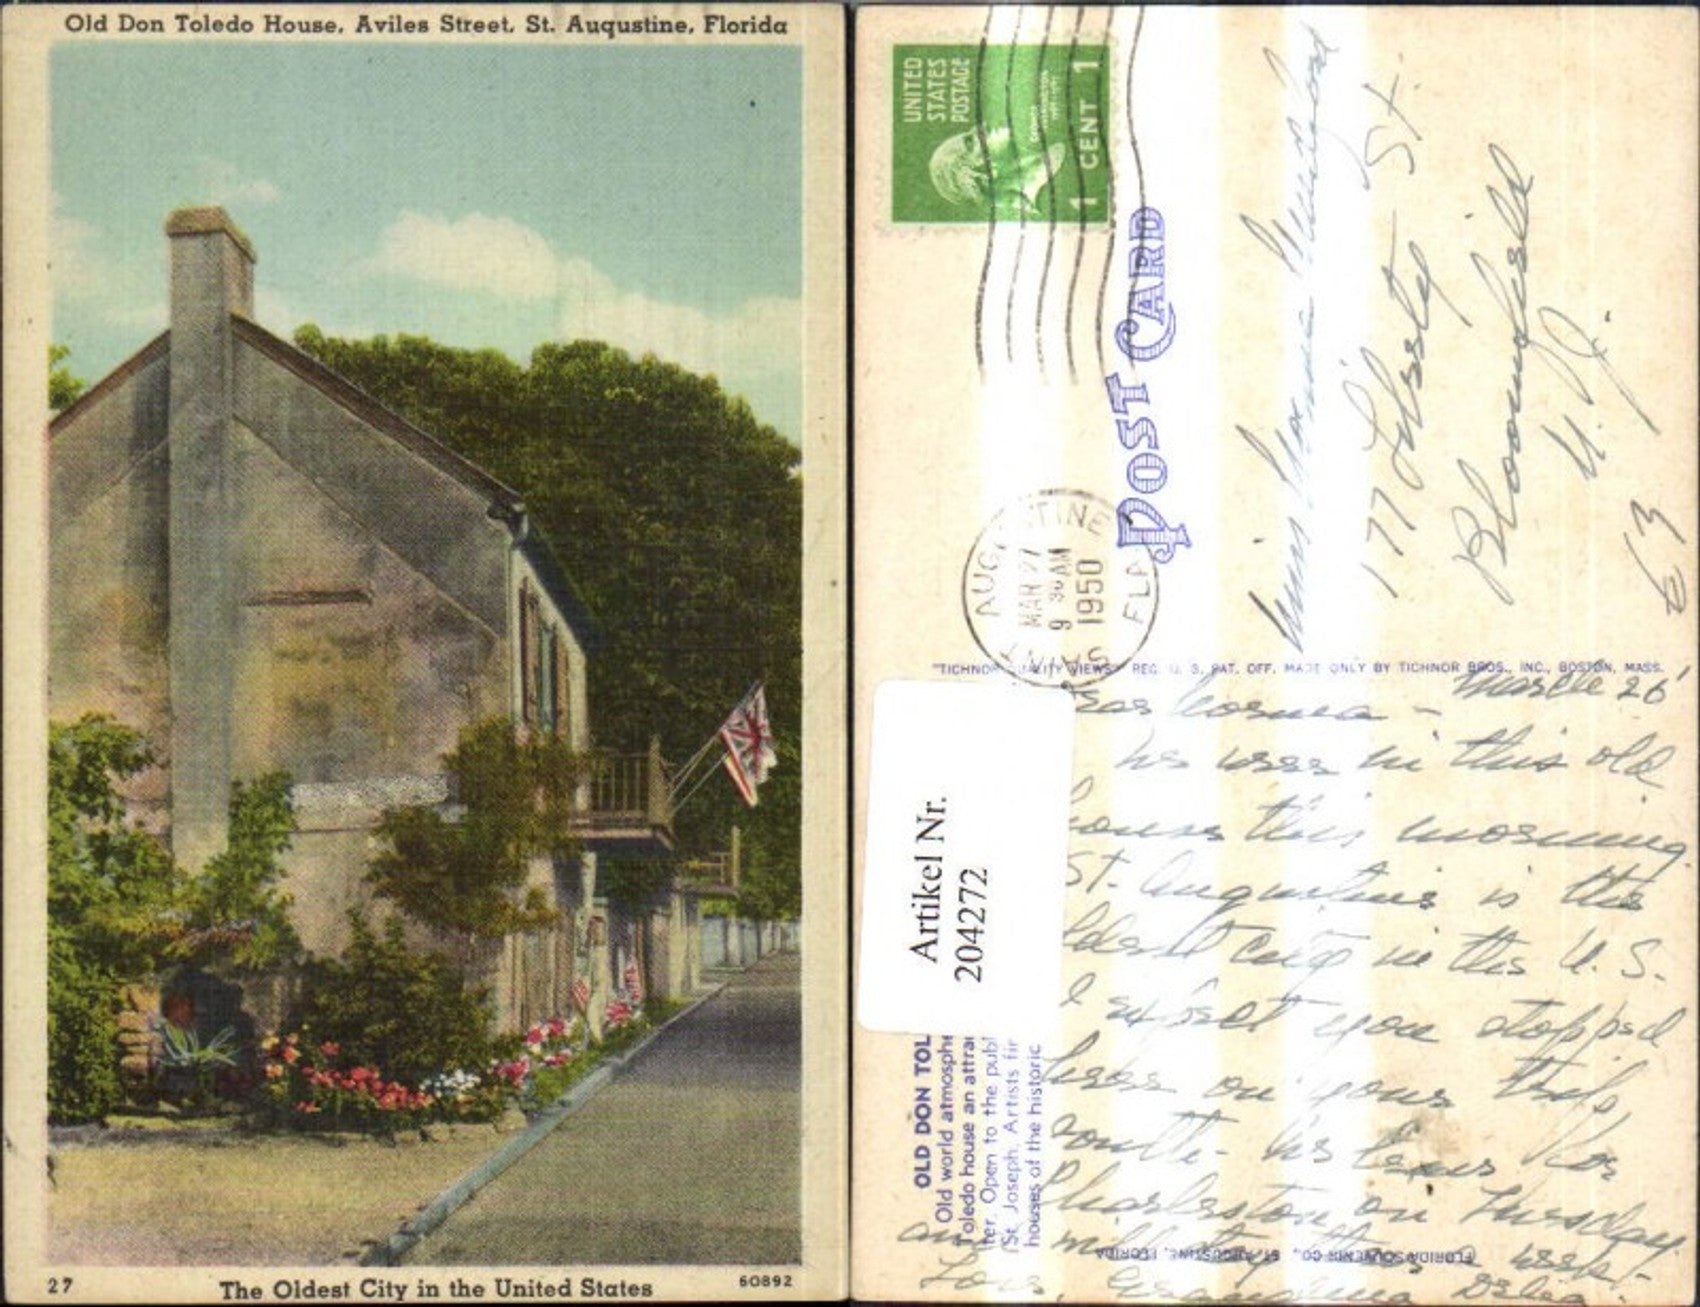 Old Don Toledo House, Aviles Street, St. Augustine, Florida
27
The Oldest City in the United States
60892
UNITED
STATES
POSTAGE
1 CENT 1
POST CARD
SAINT AUGUSTINE FLA
MAR 27
9 30 AM
1950
Miss
177 Liberty St.
Bloomfield
N.J.
63
"TICHNOR QUALITY VIEWS" REG. U. S. PAT. OFF. MADE ONLY BY TICHNOR BROS., INC., BOSTON, MASS.
March 26
- 
We were in this old
house this morning.
St. Augustine is the
oldest city in the U. S.
I expect you stopped
here on your trip
south. We leave for
Charleston on Tuesday
and will
week.
Love, Grandma
Artikel Nr.
204272
OLD DON TOL
Old world atmosphe
Toledo house an attra
ter. Open to the publ
(St. Joseph. Artists fir
houses of the historic
FLORIDA SOUVENIR CO., ST. AUGUSTINE, FLORIDA